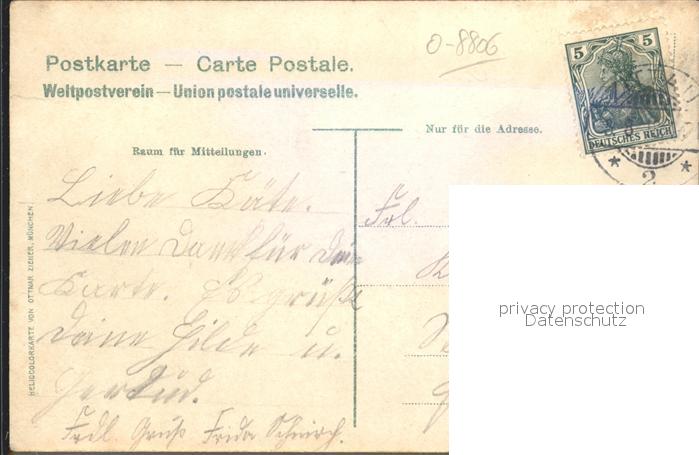 O-8806
Postkarte — Carte Postale.
Weltpostverein — Union postale universelle.
5 5
DEUTSCHES REICH
Nur für die Adresse.
Raum für Mitteilungen.
Liebe Käte.
Vielen Dank für Deine
Karte. Es grüßt
Deine Hilde u.
Gertrud.
Frdl. Gruß Frida
Frl.
HELIOCOLORKARTE VON OTTMAR ZIEHER, MÜNCHEN
privacy protection
Datenschutz